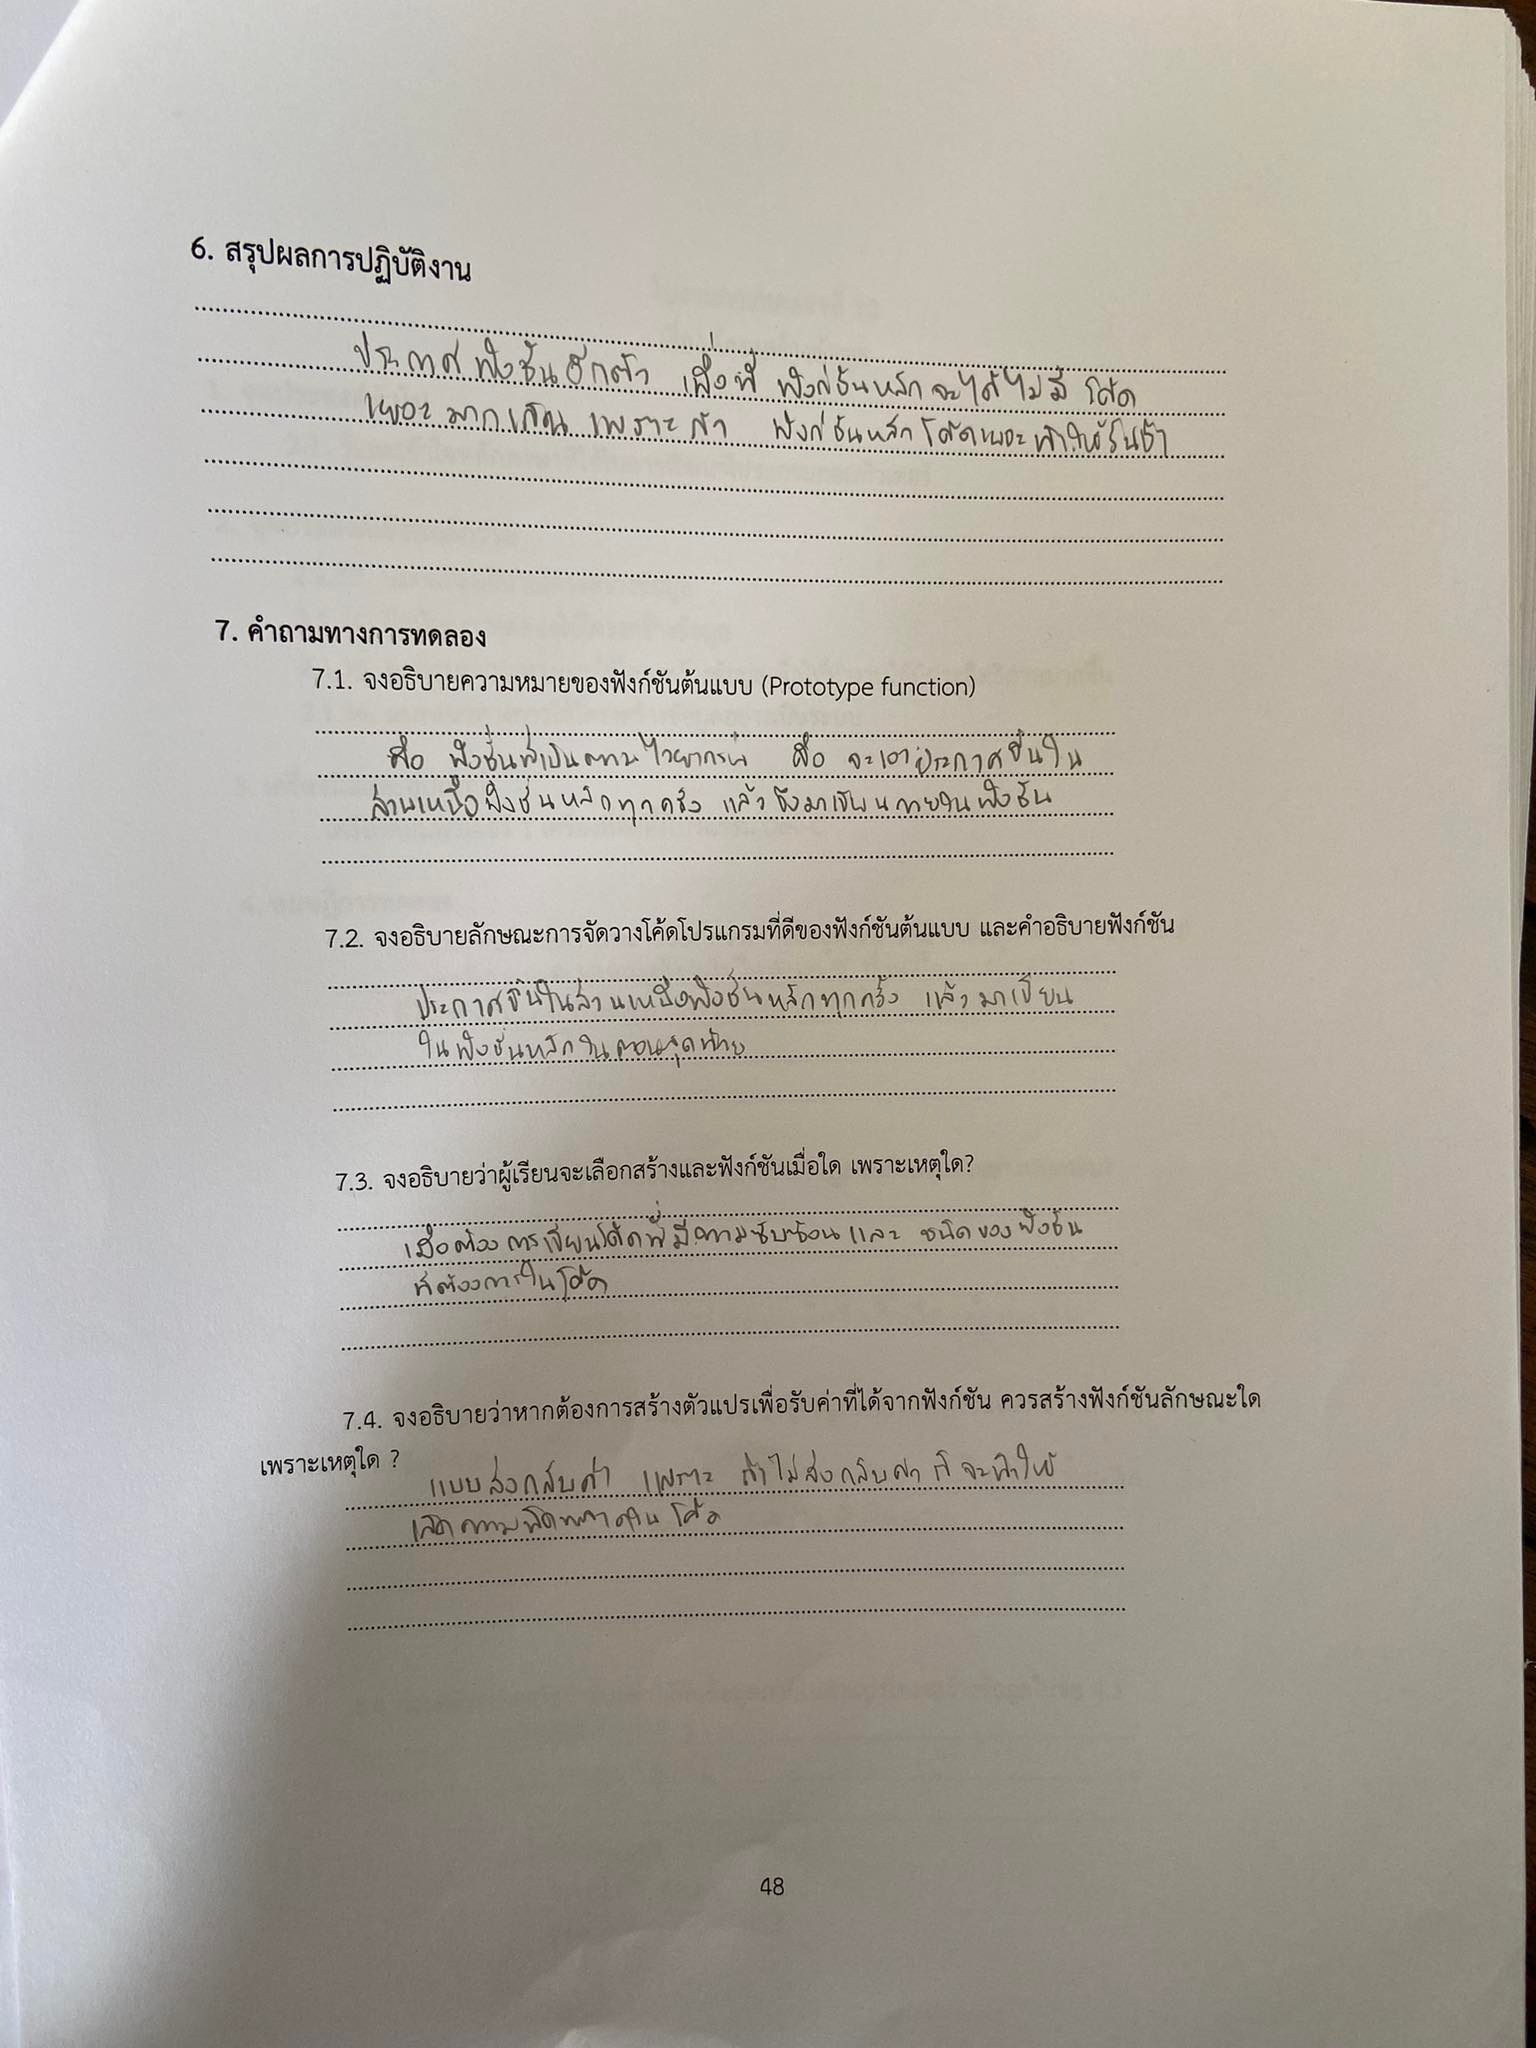 6. สรุปผลการปฏิบัติงาน
ประกาศฟังชั่นอีกตัว เพื่อที่ ฟังก์ชันหลักจะได้ไม่มี โค้ด
เยอะมากเกิน เพราะถ้า ฟังก์ชันหลักโค้ดเยอะทำให้รันช้า
7. คำถามทางการทดลอง
7.1. จงอธิบายความหมายของฟังก์ชันต้นแบบ (Prototype function)
คือ ฟังชั่นที่เป็นตามไวยากรณ์ คือ จะเอาประกาศขึ้นใน
ส่วนเหนือฟังชั่นหลักทุกครั้ง แล้วจึงมาเขียนภายในฟังชัน
7.2. จงอธิบายลักษณะการจัดวางโค้ดโปรแกรมที่ดีของฟังก์ชันต้นแบบ และคำอธิบายฟังก์ชัน
ประกาศขึ้นในส่วนเหนือฟังชั่นหลักทุกครั้ง แล้วมาเขียน
ในฟังชั่นหลักในตอนสุดท้าย
7.3. จงอธิบายว่าผู้เรียนจะเลือกสร้างและฟังก์ชันเมื่อใด เพราะเหตุใด?
เมื่อต้องการเขียนโค้ดที่มีความซับซ้อนและ ชนิดของฟังชัน
ที่ต้องการในโค้ด
7.4. จงอธิบายว่าหากต้องการสร้างตัวแปรเพื่อรับค่าที่ได้จากฟังก์ชัน ควรสร้างฟังก์ชันลักษณะใด
เพราะเหตุใด ?
แบบส่งกลับค่า เพราะ ถ้าไม่ส่งกลับค่า ก็จะทำให้
เกิดความผิดพลาดใน โค้ด
48